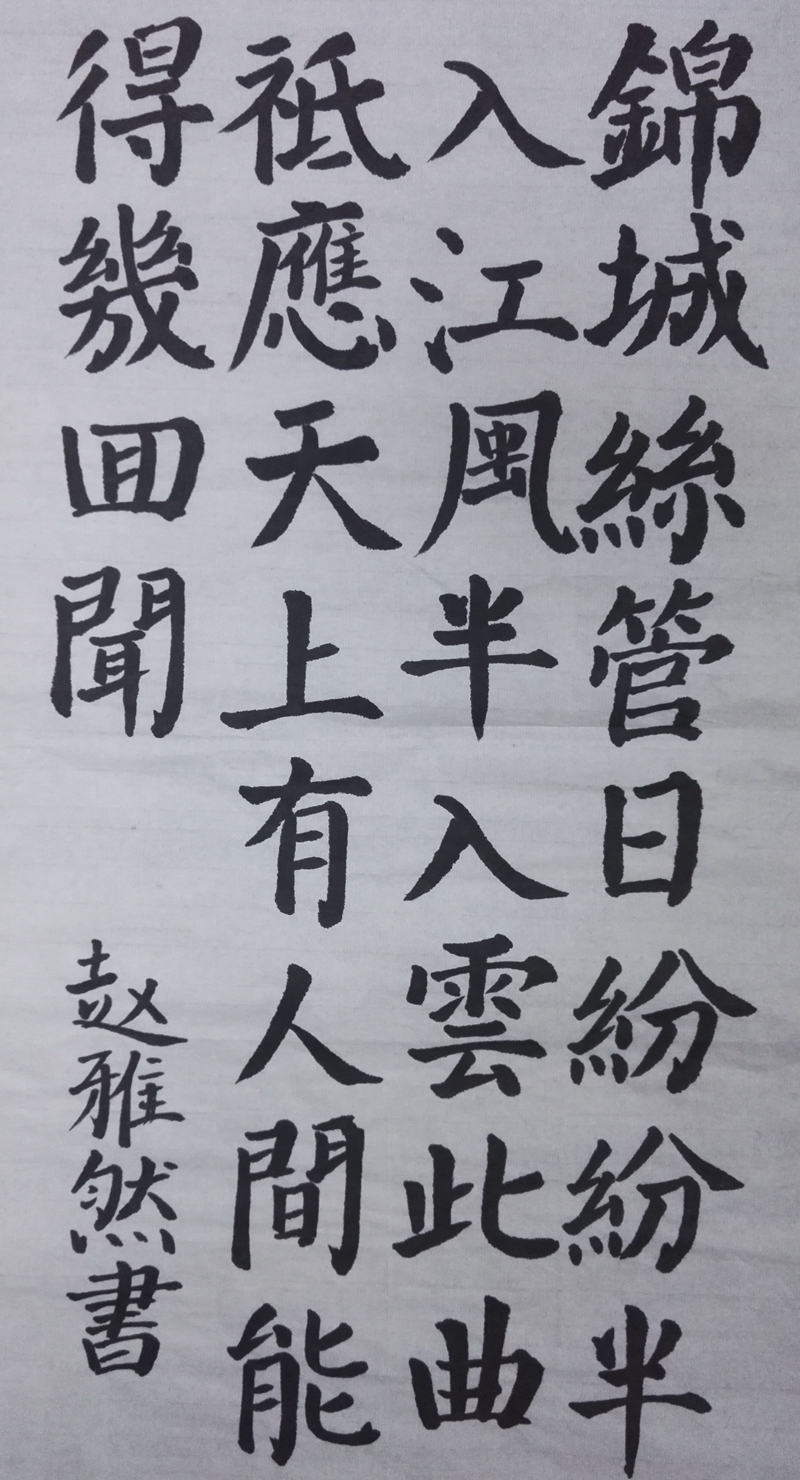 錦城絲管日紛紛半
入江風半入雲此曲
祗應天上有人間能
得幾囬聞
赵雅然書